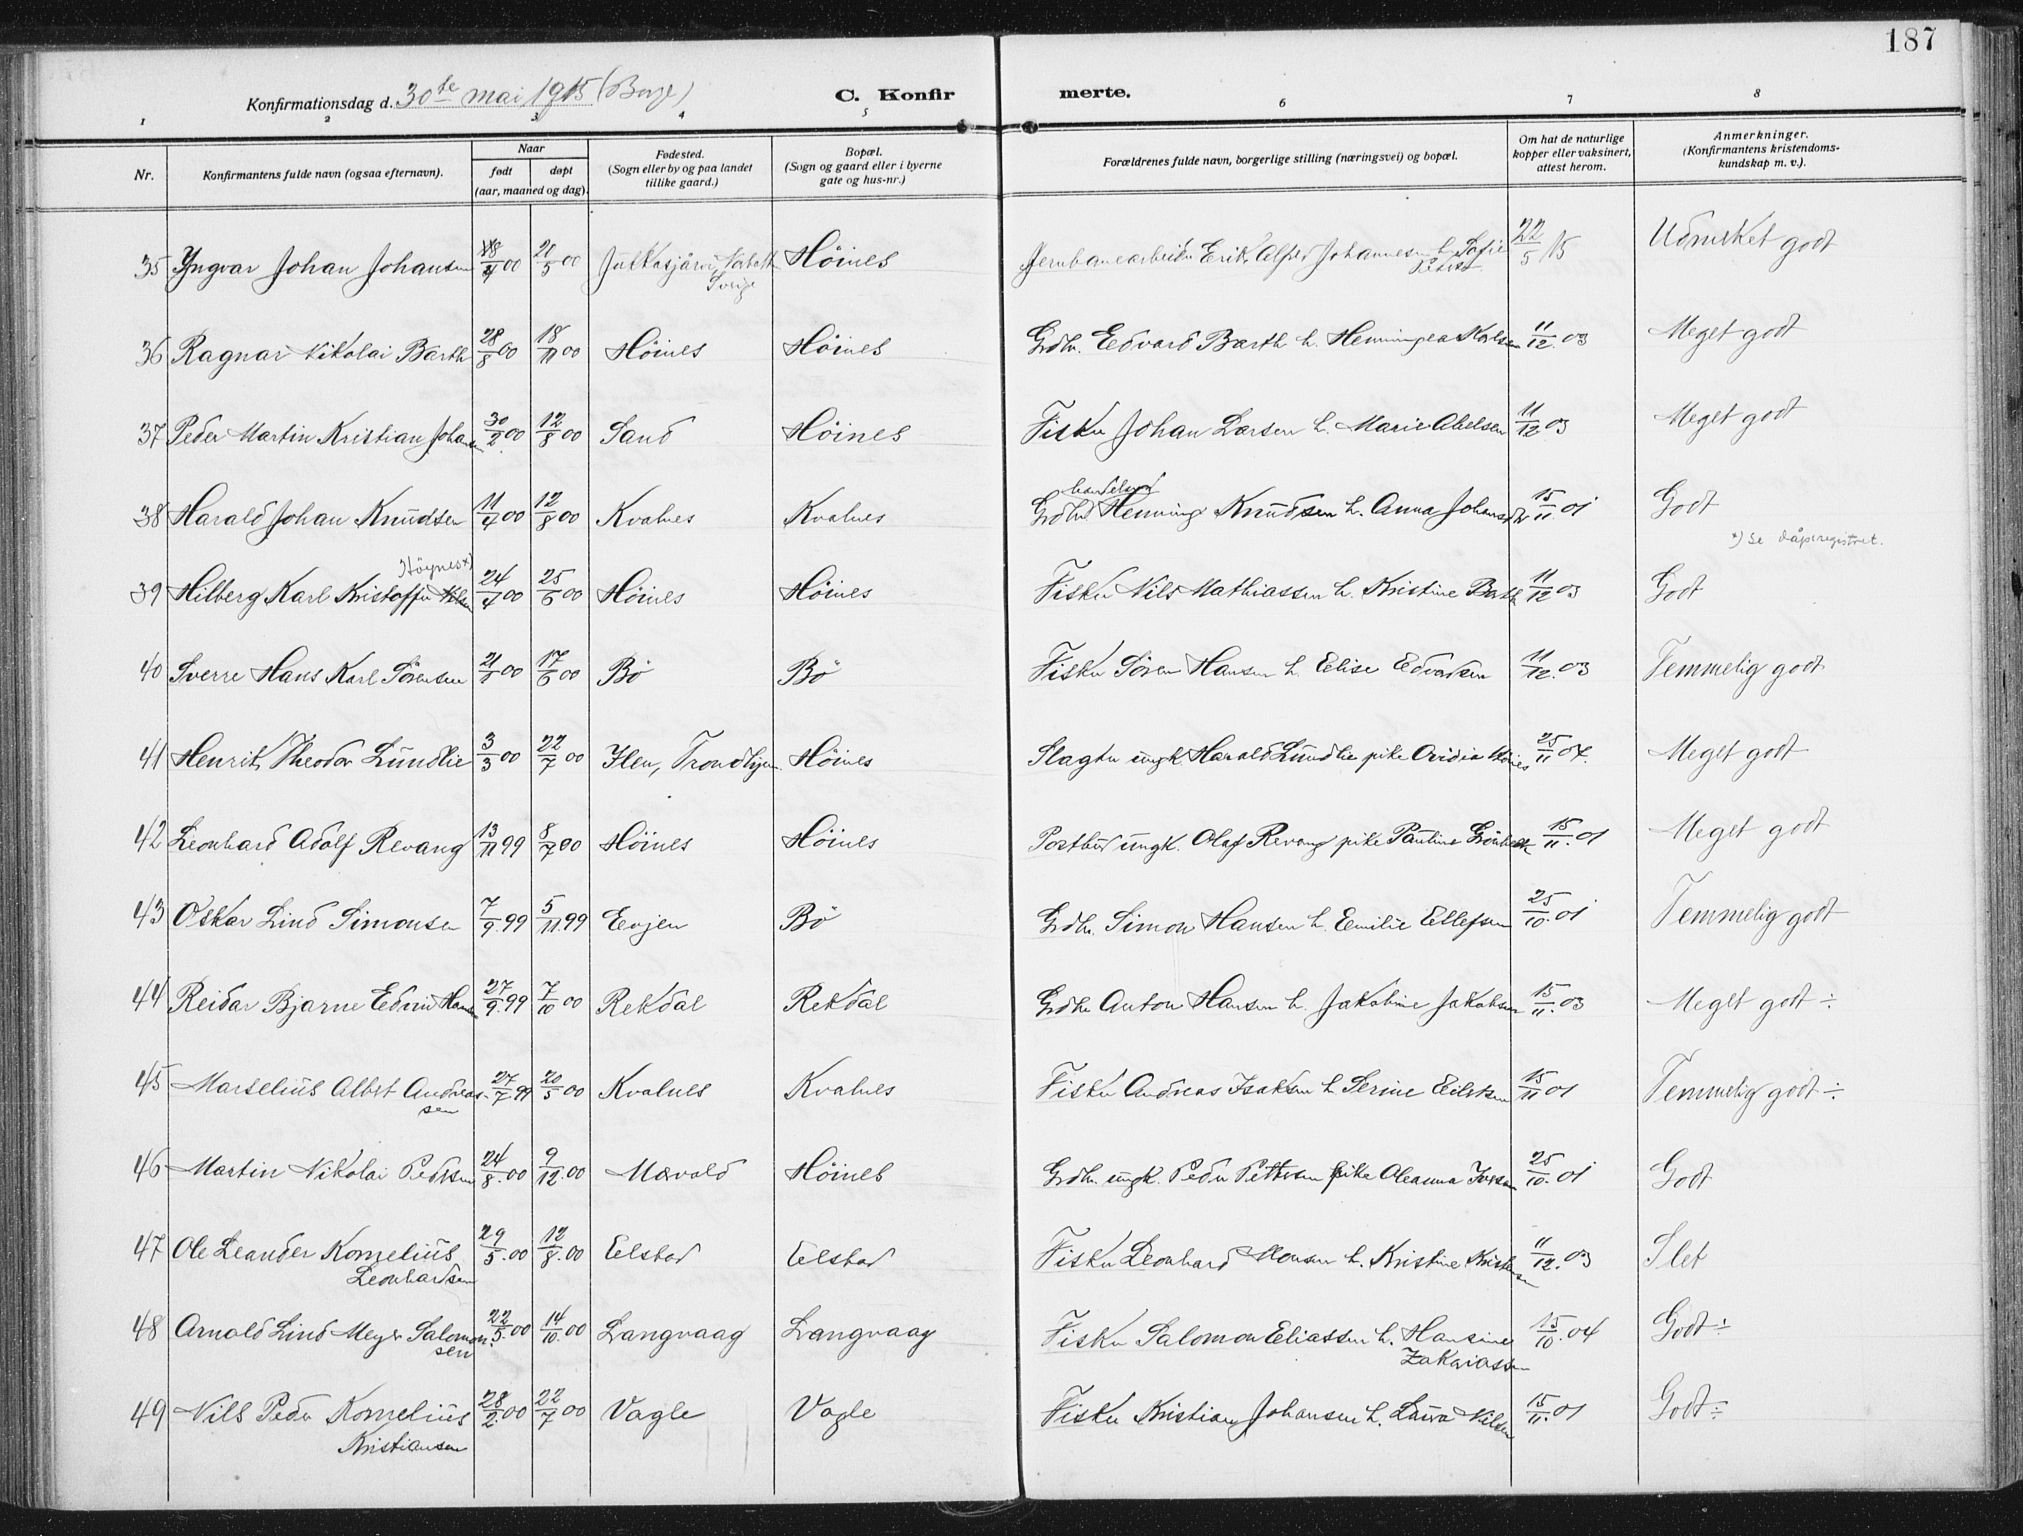 187
Konfirmationsdag d. 30te mai 1915 (Borge)
C. Konfirmerte.
1 2 3 4 5 6 7 8
Nr. Konfirmantens fulde navn (ogsaa efternavn). Naar født døpt (aar, maaned og dag). Fødested. (Sogn eller by og paa landet tillike gaard.) Bopæl. (Sogn og gaard eller i byerne gate og hus-nr.) Forældrenes fulde navn, borgerlige stilling (næringsvei) og bopæl. Om hat de naturlige kopper eller vaksinert, attest herom. Anmerkninger. (Konfirmantens kristendomskundskap m. v.).
35 Yngvar Johan Johansen 00 20/5 00 Sverige Höines Jernbanearbeider Erik Alfred Johannesen h. Sofie 22/5 15 Udmerket godt
36 Ragnar Nikolai Barth 28/8 00 18/11 00 Höines Höines Grdbr. Edvard Barth h. Henningea Karlsen 11/12 03 Meget godt
37 Peder Martin Kristian Johansen 30/2 00 12/8 00 Sand Höines Fisker Johan Larsen h. Marie Abelsen 11/12 03 Meget godt
38 Harald Johan Knudsen 11/4 00 12/8 00 Kvalnes Kvalnes Henning Knudsen h. Anna 15/11 01 Godt
x) Se dåpsregistret.
39 Hilberg Karl Kristoffer Nilsen Höynes x) 24/4 00 25/6 00 Höines Höines Fisker Nils Mathiassen h. Kristine Barth 11/12 03 Godt
40 Sverre Hans Karl Sörensen 21/1 00 17/6 00 Bö Bö Fisker Sören Hansen h. Elise Edvardsen 11/12 03 Temmelig godt
41 Henrik Theodor Lundlie 3/3 00 22/7 00 Ilen, Trondhjem Höines Slagter ungk. Harald Lundlie pike Ovidia Höines 25/11 07. Meget godt
42 Leonhard Adolf Revang 13/11 99 8/7 00 Höines Höines Postbud ungk. Olaf Revang pike Pauline Grönbeck 15/11 01 Meget godt
43 Oskar Lind Simonsen 7/9 99 5/11 99 Evjen Bö Grdbr. Simon Hansen h. Emilie Ellefsen 25/10 01 Temmelig godt
44 Reidar Bjarne Edvin Hansen 27/9 99 7/10 00 Rekdal Rekdal Grdbr Anton Hansen h. Jakobine Jakobsen 15/11 03 Meget godt ÷
45 Marselius Albert Andreassen 27/7 99 20/5 00 Kvalnes Kvalnes Fisker Andreas Isaksen h. Serine Eilertsen 15/11 01 Temmelig godt ÷
46 Martin Nikolai Pedersen 24/8 00 9/12 00 Mærvold Höines Grdbr. ungk. Peder Pettersen pike Oleanna 25/10 01 Godt
47 Ole Leander Kornelius Leonhardsen 29/5 00 12/8 00 Eelstad Eelstad Fisker Leonhard Monsen h. Kristine Kristensen 11/12 03 Slet
48 Arnold Lind Meyer Salomonsen 22/5 00 14/10 00 Langvaag Langvaag Fisker Salomon Eliassen h. Hansine Zakariassen 15/10 04 Godt ÷
49 Nils Peder Kornelius Kristiansen 28/2 00 22/7 00 Vagle Vagle Fisker Kristian Johansen h. Laura Nilsen 15/11 01 Godt ÷